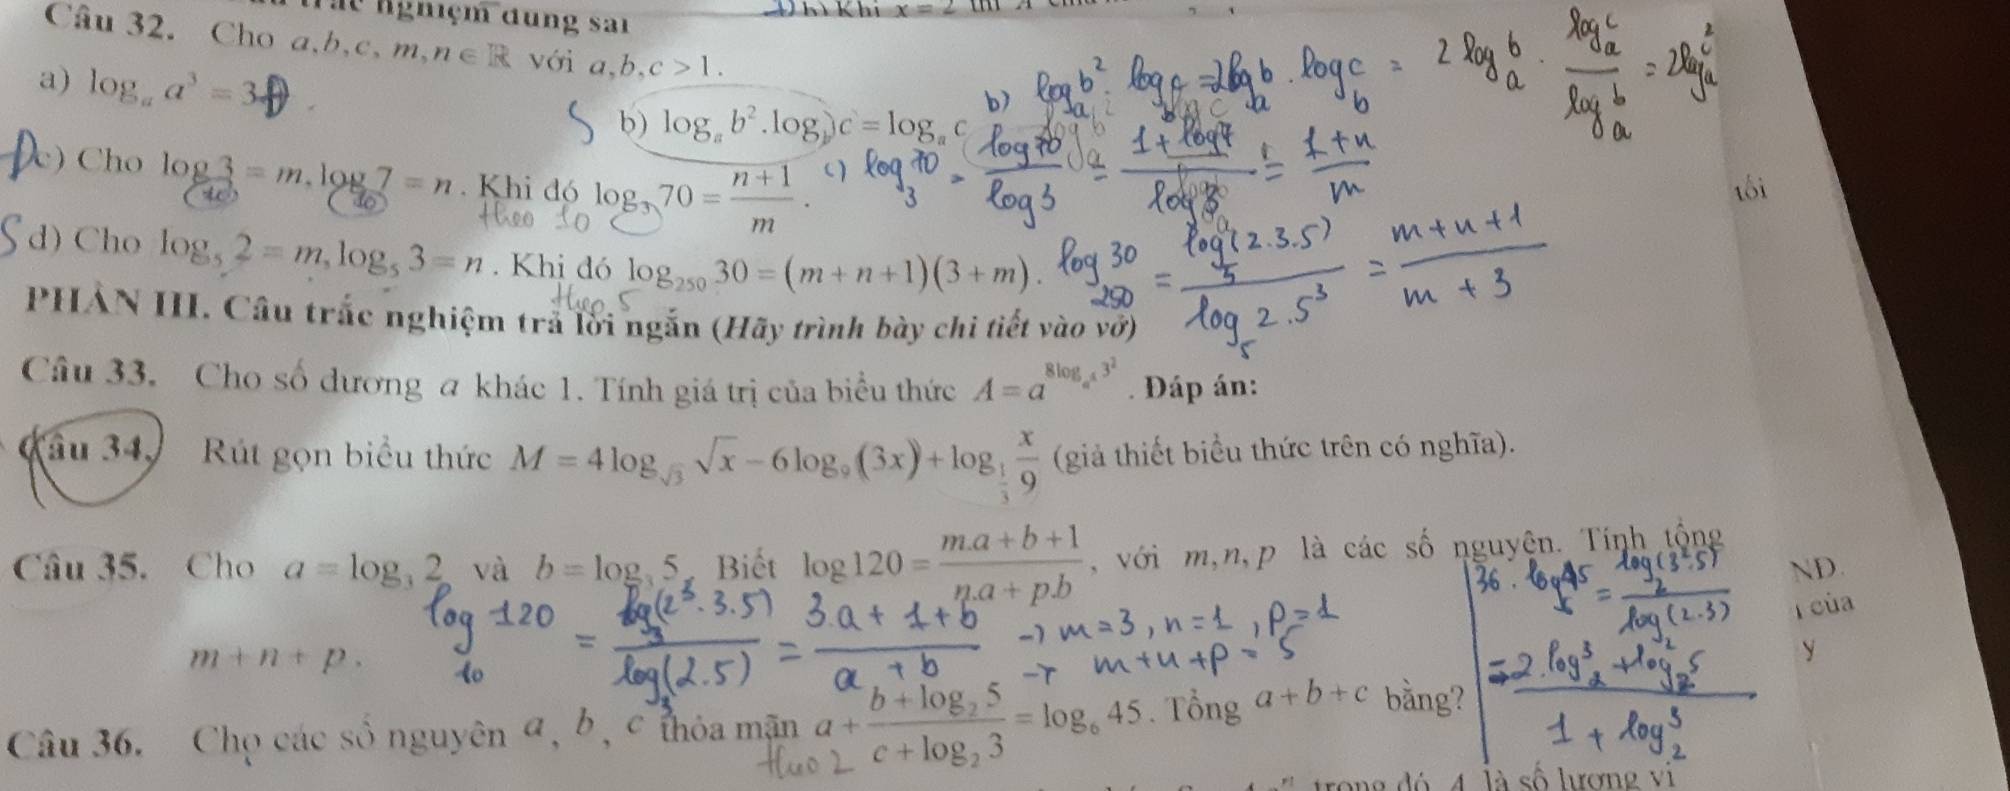 nghiệm đúng sai
Câu 32. Cho a,b,c, m,n ∈ ℝ với a,b,c > 1.
a) logₐ a³ = 3 Đ
S b) logₐ b².log_b c = logₐ c
b) logₐ b² . log_b c = 2logₐ b . log_b c = 2 logₐ b . logₐ c / logₐ b = 2logₐ c
Đ c) Cho log 3 = m, log 7 = n. Khi đó log₃ 70 = (n+1)/m.
10 10 theo 10
c) log₃ 70 = log 70 / log 3 = (1 + log 7) / log 3 = (1+n)/m
S d) Cho log₅ 2 = m, log₅ 3 = n. Khi đó log₂₅₀ 30 = (m+n+1)(3+m).
theo 5
log₂₅₀ 30 = log₅(2.3.5) / log₅ 2.5³ = (m+n+1)/(m+3)
tối
PHẦN III. Câu trắc nghiệm trả lời ngắn (Hãy trình bày chi tiết vào vở)
Câu 33. Cho số dương a khác 1. Tính giá trị của biểu thức A = a^(8log_(a⁴) 3²). Đáp án:
Câu 34. Rút gọn biểu thức M = 4log_√3 √x − 6log₉(3x) + log_(1/3) x/9 (giả thiết biểu thức trên có nghĩa).
Câu 35. Cho a = log₃ 2 và b = log₃ 5. Biết log120 = (m.a+b+1)/(n.a+p.b), với m,n,p là các số nguyên. Tính tổng
m+n+p.
log₁₀ 120 = log₃(2³.3.5) / log₃(2.5) = (3.a+1+b)/(a+b) → m=3, n=1, p=1
→ m+n+p = 5
36. log₆ 45 = log₂(3².5) / log₂(2.3)
= (2.log₂ 3 + log₂ 5) / (1 + log₂ 3)
ND.
của
y
Câu 36. Cho các số nguyên a, b, c thỏa mãn a + (b+log₂ 5)/(c+log₂ 3) = log₆ 45. Tổng a+b+c bằng?
theo 2
trong đó A là số lượng vi